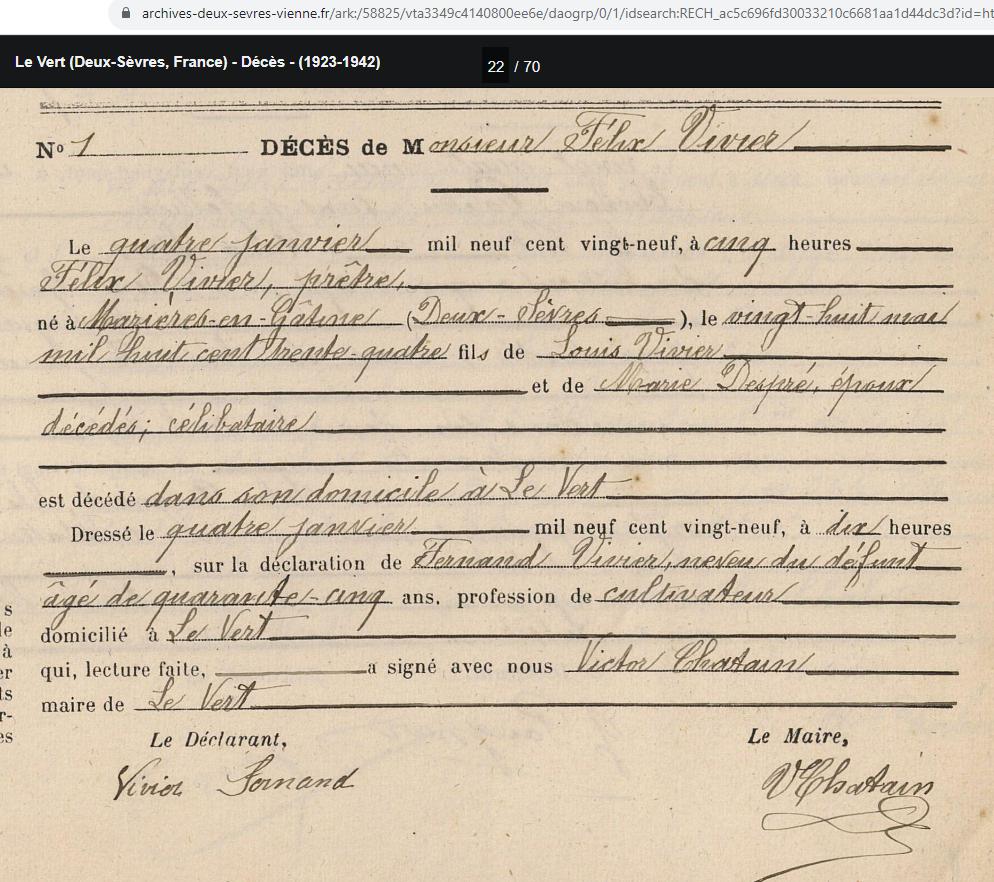 archives-deux-sevres-vienne.fr/ark:/58825/vta3349c4140800ee6e/daogrp/0/1/idsearch:RECH_ac5c696fd30033210c6681aa1d44dc3d?id=ht
Le Vert (Deux-Sèvres, France) - Décès - (1923-1942) 22 / 70
N° 1 DÉCÈS de Monsieur Félix Vivier
Le quatre janvier mil neuf cent vingt-neuf, à cinq heures
Félix Vivier, prêtre,
né à Mazières-en-Gâtine (Deux-Sèvres), le vingt-huit mai
mil huit cent trente-quatre fils de Louis Vivier
et de Marie Despré, époux
décédés; célibataire
est décédé dans son domicile à Le Vert
Dressé le quatre janvier mil neuf cent vingt-neuf, à dix heures
, sur la déclaration de Fernand Vivier, neveu du défunt
âgé de quarante-cinq ans, profession de cultivateur
domicilié à Le Vert
qui, lecture faite, a signé avec nous Victor Chatain
maire de Le Vert
Le Déclarant, Le Maire,
Vivier Fernand VChatain